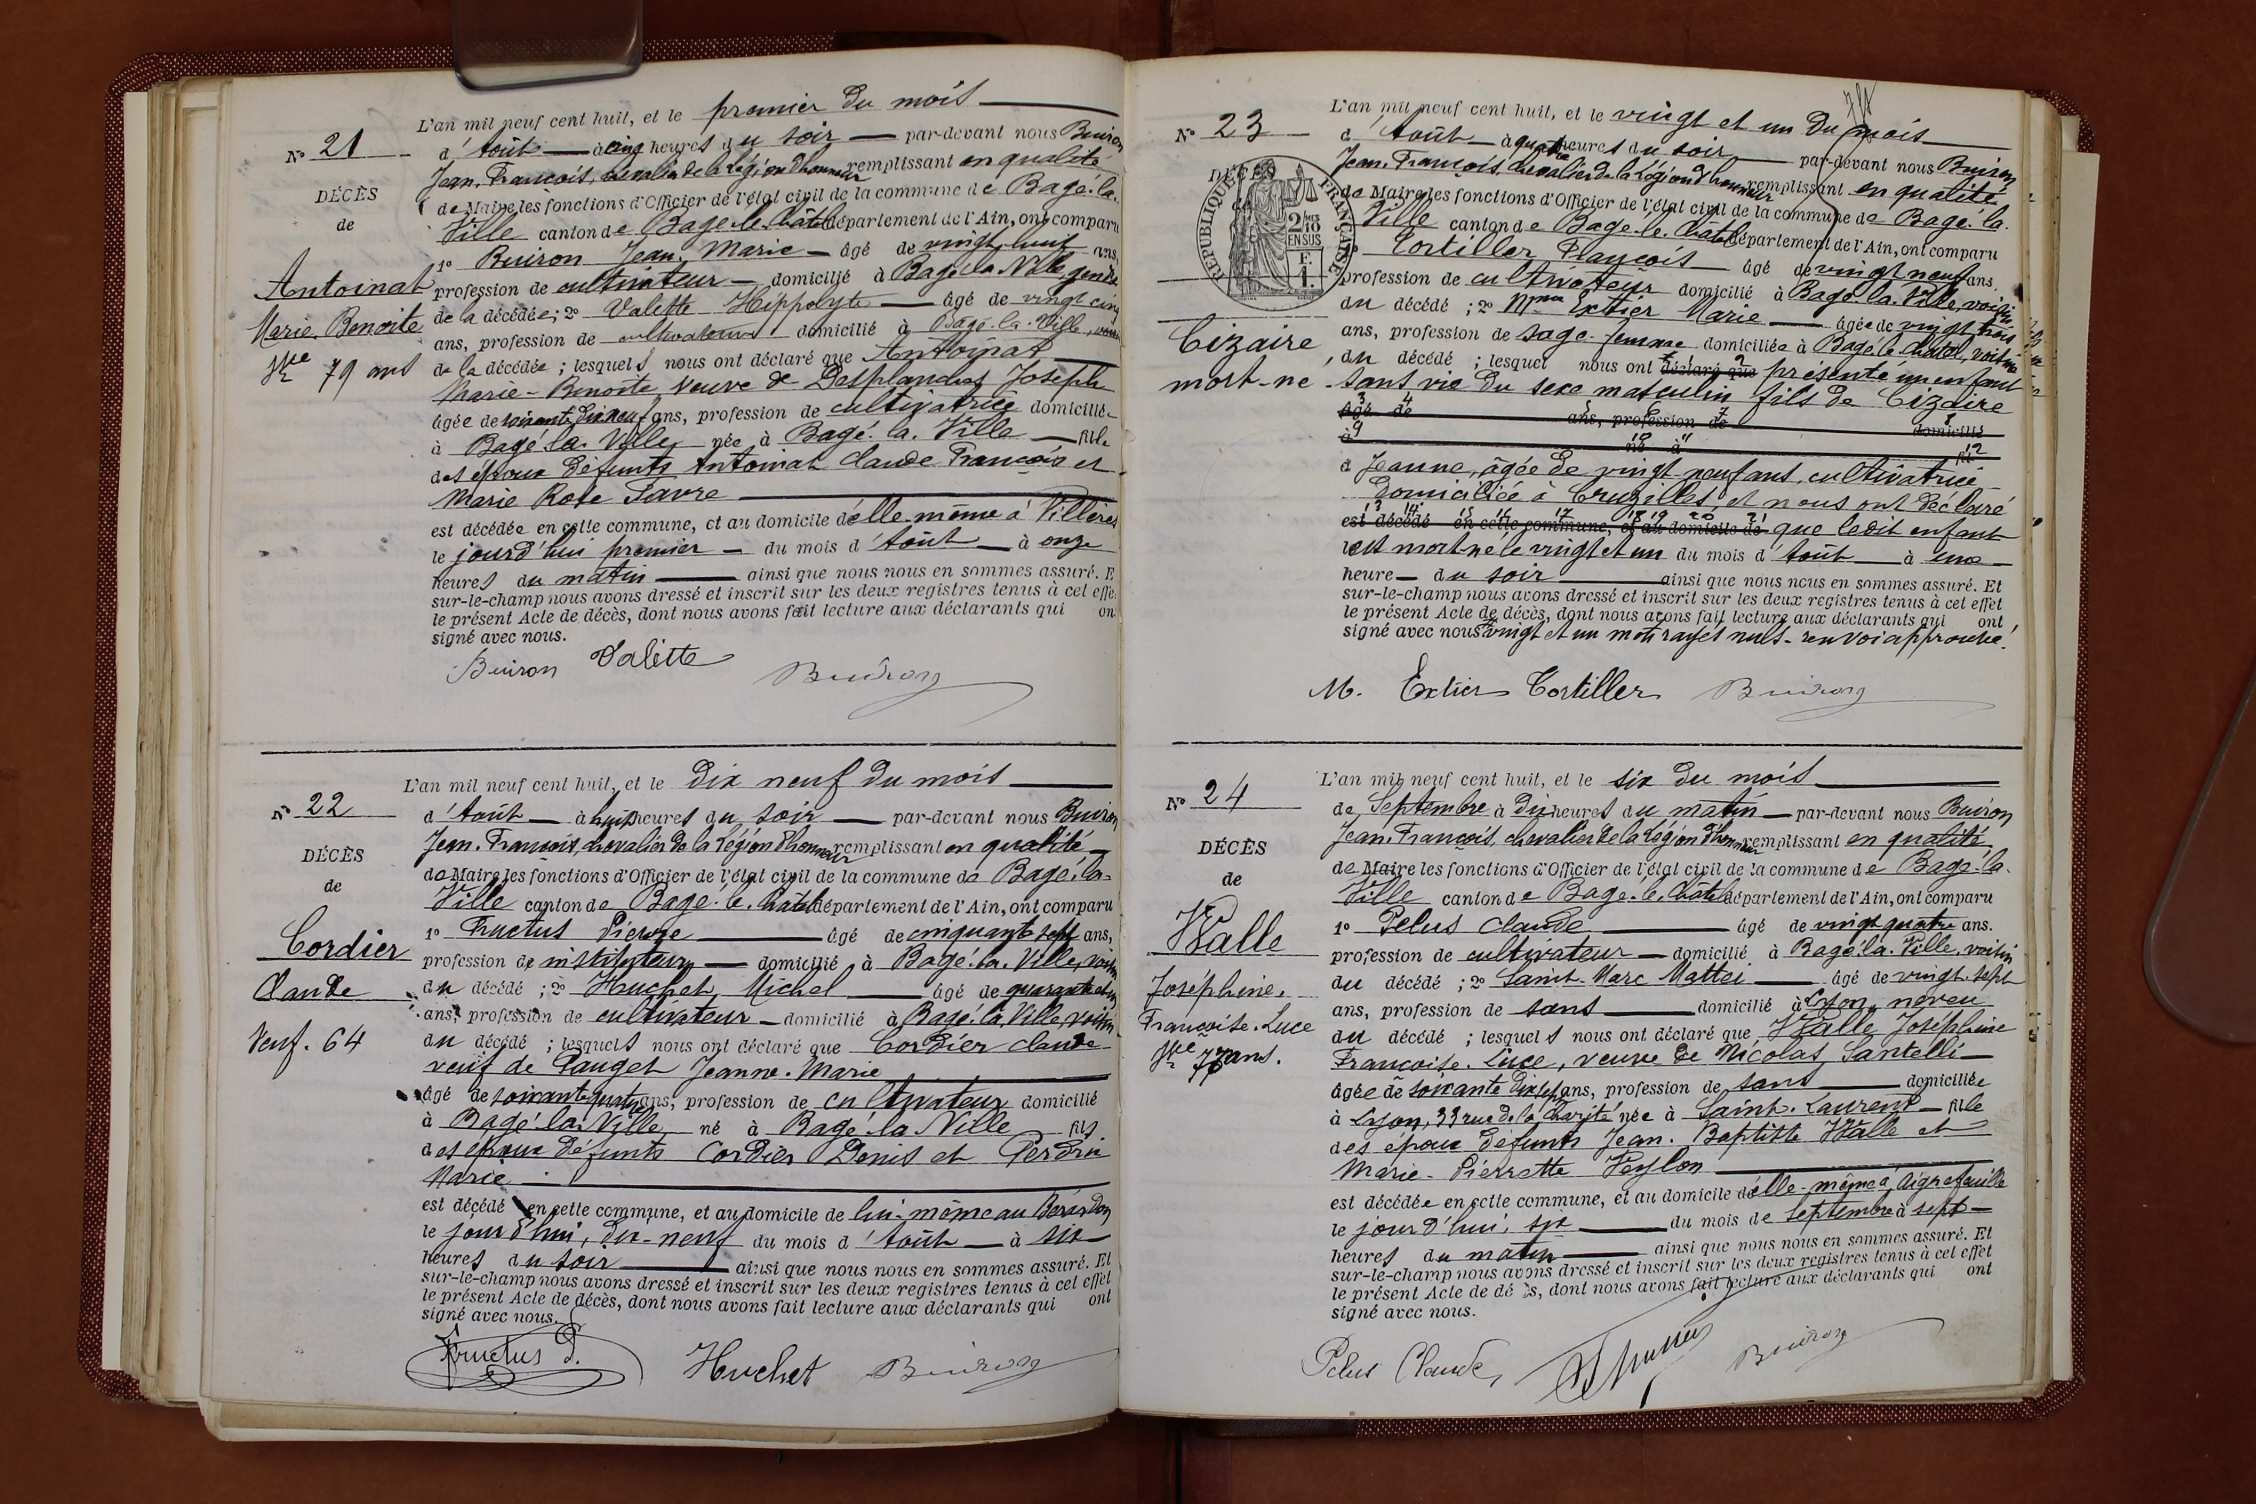 N° 21
DÉCÈS
de
Antoinat
Marie Benoite
Vve 79 ans
L'an mil neuf cent huit, et le premier du mois
d'Août à cinq heures du soir par-devant nous Buiron
Jean-François, chevalier de la Légion d'honneur remplissant en qualité
de Maire les fonctions d'Officier de l'état civil de la commune de Bagé-la-
Ville canton de Bagé-le-Châtel département de l'Ain, ont comparu
1° Buiron Jean-Marie âgé de vingt huit ans,
profession de cultivateur domicilié à Bagé-la-Ville, gendre
de la décédée; 2° Valette Hippolyte âgé de vingt cinq
ans, profession de cultivateur domicilié à Bagé-la-Ville, voisin
de la décédée; lesquels nous ont déclaré que Antoinat
Marie-Benoite, veuve de Desplanches Joseph
âgée de soixante dix neuf ans, profession de cultivatrice domiciliée
à Bagé-la-Ville née à Bagé-la-Ville fille
des époux défunts Antoinat Claude François et
Marie Rose Favre
est décédée en cette commune, et au domicile d'elle-même à Villeres
le jourd'hui premier du mois d'Août à onze
heures du matin ainsi que nous nous en sommes assuré. E
sur-le-champ nous avons dressé et inscrit sur les deux registres tenus à cet effe
le présent Acte de décès, dont nous avons fait lecture aux déclarants qui on
signé avec nous.
Buiron Valette Buiron
N° 22
DÉCÈS
de
Cordier
Claude
Veuf. 64
L'an mil neuf cent huit, et le dix neuf du mois
d'Août à huit heures du soir par-devant nous Buiron
Jean-François, chevalier de la Légion d'honneur remplissant en qualité
de Maire les fonctions d'Officier de l'état civil de la commune de Bagé-la-
Ville canton de Bagé-le-Châtel département de l'Ain, ont comparu
1° Fructus Pierre âgé de cinquante sept ans,
profession de instituteur domicilié à Bagé-la-Ville, voisin
du décédé; 2° Huchet Michel âgé de quarante et un
ans, profession de cultivateur domicilié à Bagé-la-Ville, voisin
du décédé; lesquels nous ont déclaré que Cordier Claude
veuf de Pauget Jeanne-Marie
âgé de soixante quatre ans, profession de cultivateur domicilié
à Bagé-la-Ville né à Bagé-la-Ville fils
des époux défunts Cordier Denis et Perdrix
Marie
est décédé en cette commune, et au domicile de lui-même au
le jourd'hui, dix-neuf du mois d'Août à six
heures du soir ainsi que nous nous en sommes assuré. Et
sur-le-champ nous avons dressé et inscrit sur les deux registres tenus à cet effet
le présent Acte de décès, dont nous avons fait lecture aux déclarants qui ont
signé avec nous.
Fructus P. Huchet Buiron
N° 23
DÉCÈS
RÉPUBLIQUE FRANÇAISE
2/10 EN SUS
F. 1.
Cizaire
mort-né
L'an mil neuf cent huit, et le vingt et un du mois
d'Août à quatre heures du soir par-devant nous Buiron
Jean-François, chevalier de la Légion d'honneur remplissant en qualité
de Maire les fonctions d'Officier de l'état civil de la commune de Bagé-la-
Ville canton de Bagé-le-Châtel département de l'Ain, ont comparu
Tortiller François âgé de vingt neuf ans,
profession de cultivateur domicilié à Bagé-la-Ville, voisin
du décédé; 2° Mme Extier Marie âgée de vingt trois
ans, profession de sage-femme domiciliée à Bagé-le-Châtel, voisine
du décédé; lesquel nous ont déclaré que présenté un enfant
sans vie du sexe masculin fils de Cizaire
âgé de ans, profession de domicilié
à né à fil
d Jeanne, âgée de vingt neuf ans, cultivatrice
domiciliée à Cruzilles, et nous ont déclaré
est décédé en cette commune, et au domicile de que ledit enfant
est mort-né le vingt et un du mois d'Août à une
heure du soir ainsi que nous nous en sommes assuré. Et
sur-le-champ nous avons dressé et inscrit sur les deux registres tenus à cet effet
le présent Acte de décès, dont nous avons fait lecture aux déclarants qui ont
signé avec nous vingt et un mots rayés nuls - renvoi approuvé.
M. Extier Tortiller Buiron
N° 24
DÉCÈS
de
Walle
Joséphine,
Françoise-Luce
Vve 77 ans.
L'an mil neuf cent huit, et le six du mois
de Septembre à dix heures du matin par-devant nous Buiron
Jean-François, chevalier de la Légion d'honneur remplissant en qualité
de Maire les fonctions d'Officier de l'état civil de la commune de Bagé-la-
Ville canton de Bagé-le-Châtel département de l'Ain, ont comparu
1° Pelus Claude âgé de vingt quatre ans.
profession de cultivateur domicilié à Bagé-la-Ville, voisin
du décédé; 2° Saint-Marc Mattei âgé de vingt-sept
ans, profession de sans domicilié à Lyon, neveu
du décédé; lesquels nous ont déclaré que Walle Joséphine
Françoise-Luce, veuve de Nicolas Santelli
âgée de soixante dix sept ans, profession de sans domiciliée
à Lyon, 33 rue de la Charité née à Saint-Laurent fille
des époux défunts Jean-Baptiste Walle et
Marie-Pierrette Veylon
est décédée en cette commune, et au domicile d'elle-même à Aigrefeuille
le jourd'hui, six du mois de Septembre à sept
heures du matin ainsi que nous nous en sommes assuré. Et
sur-le-champ nous avons dressé et inscrit sur les deux registres tenus à cet effet
le présent Acte de décès, dont nous avons fait lecture aux déclarants qui ont
signé avec nous.
Pelus Claude, Buiron